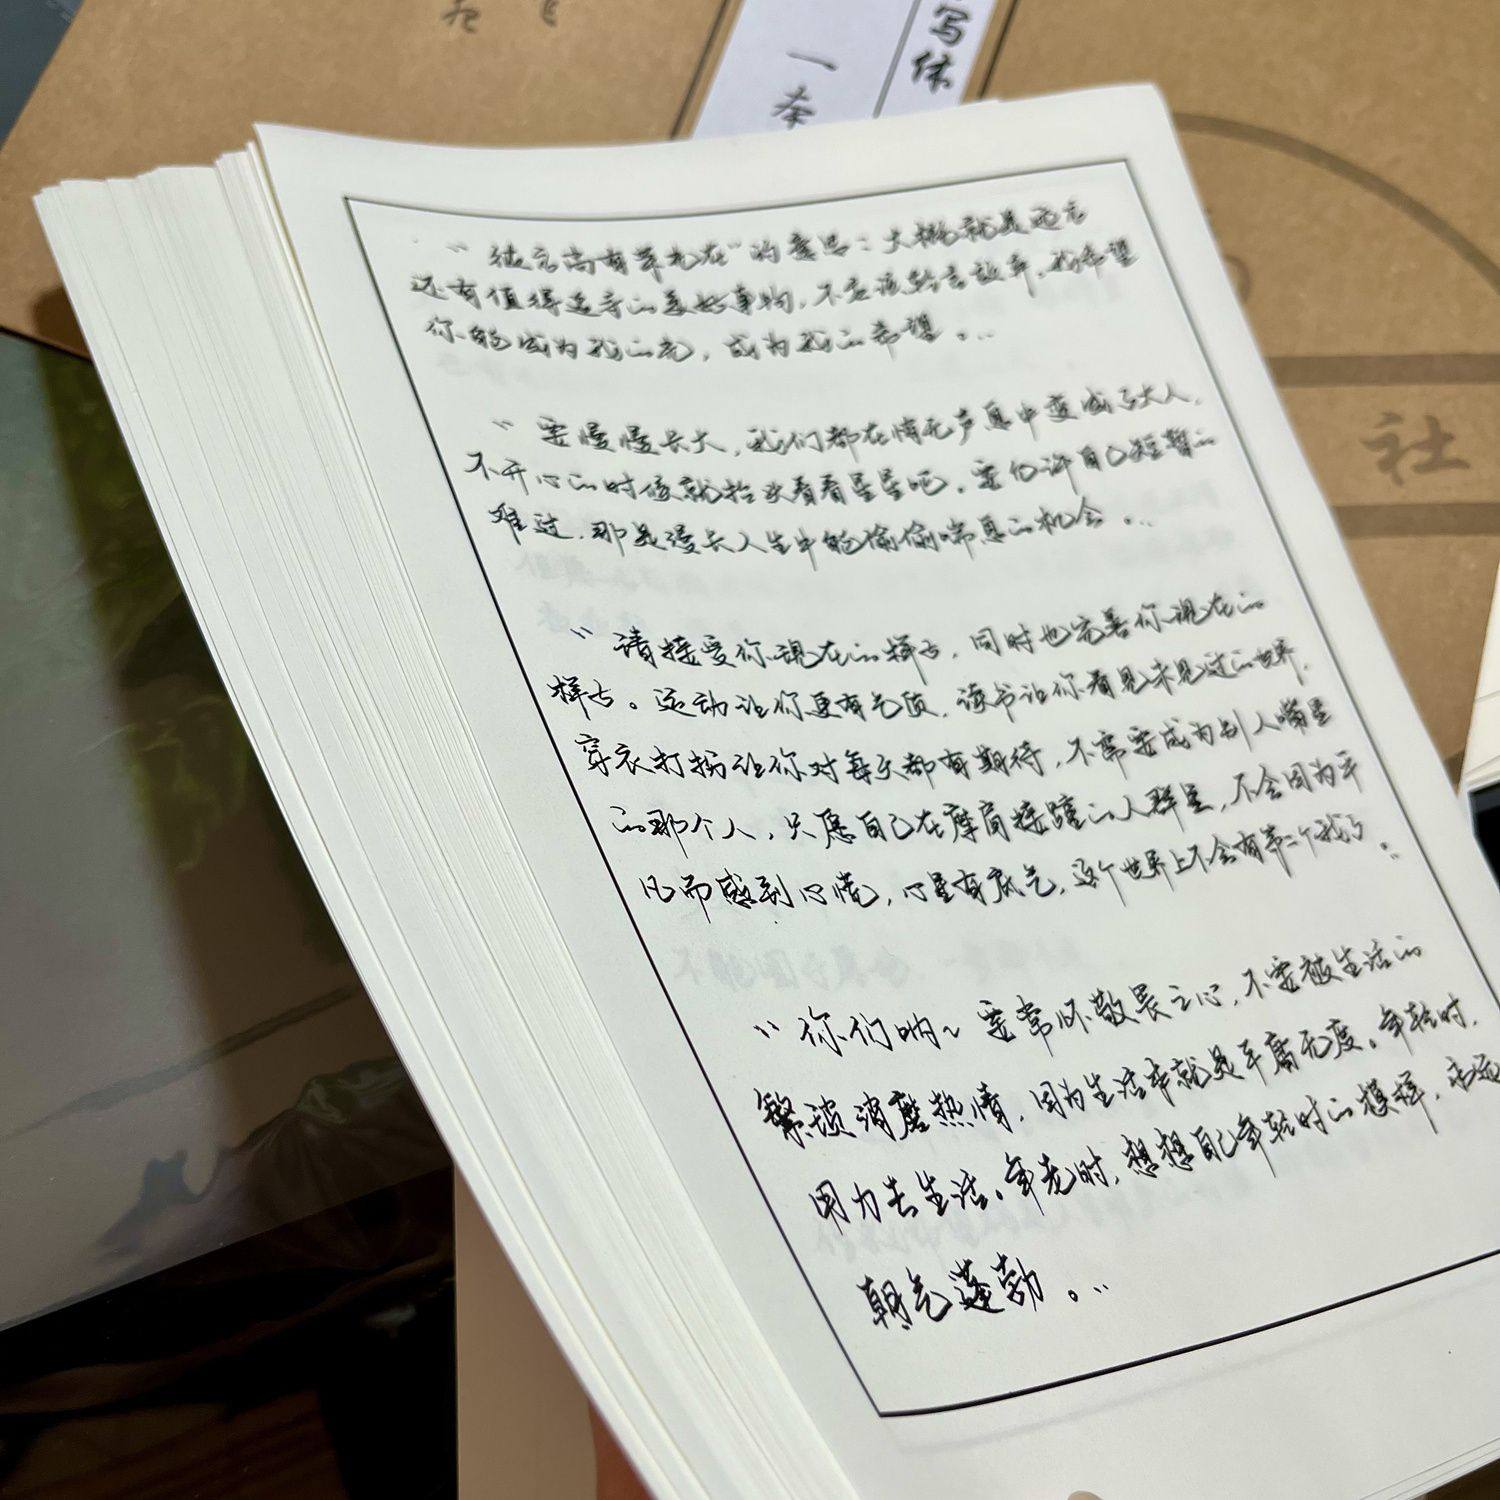 写体
一本
社
“彼方尚有荣光在”的意思：大概就是远方
还有值得追寻的美好事物，不应该轻言放弃，我希望
你能成为我的光，成为我的希望。
“要慢慢长大，我们都在悄无声息中变成了大人，
不开心的时候就抬头看看星星吧，要允许自己短暂的
难过，那是漫长人生中能偷偷喘息的机会。
“请接受你现在的样子，同时也完善你现在的
样子。运动让你更有气质，读书让你看见未见过的世界，
穿衣打扮让你对每天都有期待，不需要成为别人嘴里
的那个人，只愿自己在摩肩接踵的人群里，不会因为平
凡而感到心慌，心里有底气，这个世界上不会有第二个我了。
“你们呐~要常怀敬畏之心，不要被生活的
繁琐消磨热情，因为生活本就是平庸无度。年轻时，
用力去生活。年老时，想想自己年轻时的模样，永远
朝气蓬勃。